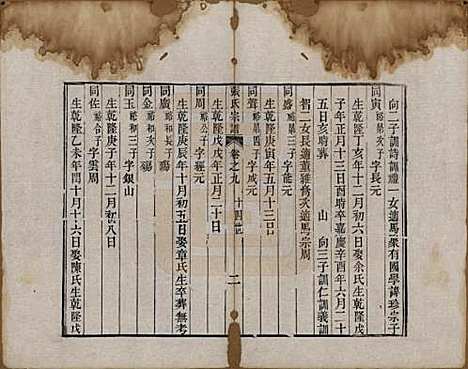 向二子訓詩訓禮 女適馬衆有國學諱珍宗子
同寅 子字長元
生乾隆丁亥年十二月初六日娶余氏生乾隆戊
子年正月十三日酉時卒嘉慶辛酉年六月二十
五日亥時葬 山 向三子訓仁訓義訓
智二女長適董雅修次適馬宗周
同盛 三子字能元
同聲 四子字咸元
生乾隆庚寅年五月十三日
張氏宗譜 卷之九 十四 二
同周 子字經元
生乾隆戊戌年正月二十日
同廣 和次子殤
生乾隆庚辰年十月初五日娶章氏生卒葬無考
同金 和次子殤
同玉 和三子字銀山
生乾隆庚子年十二月初八日
同佐 合子字雲周
生乾隆乙未年閏十月十六日娶陳氏生乾隆戊